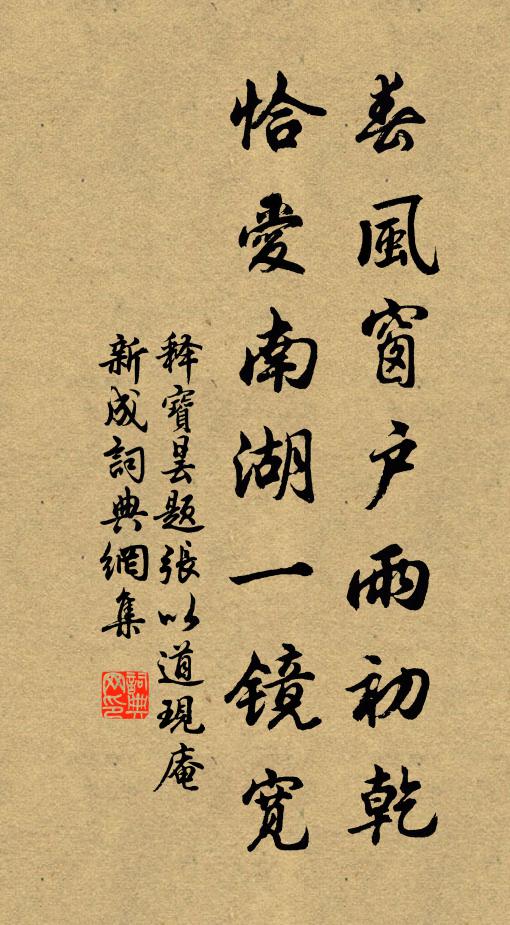 春風窗戶雨初乾
恰愛南湖一鏡寬
釋寶曇題張以道現庵
新成詞典網集
詞典
网印